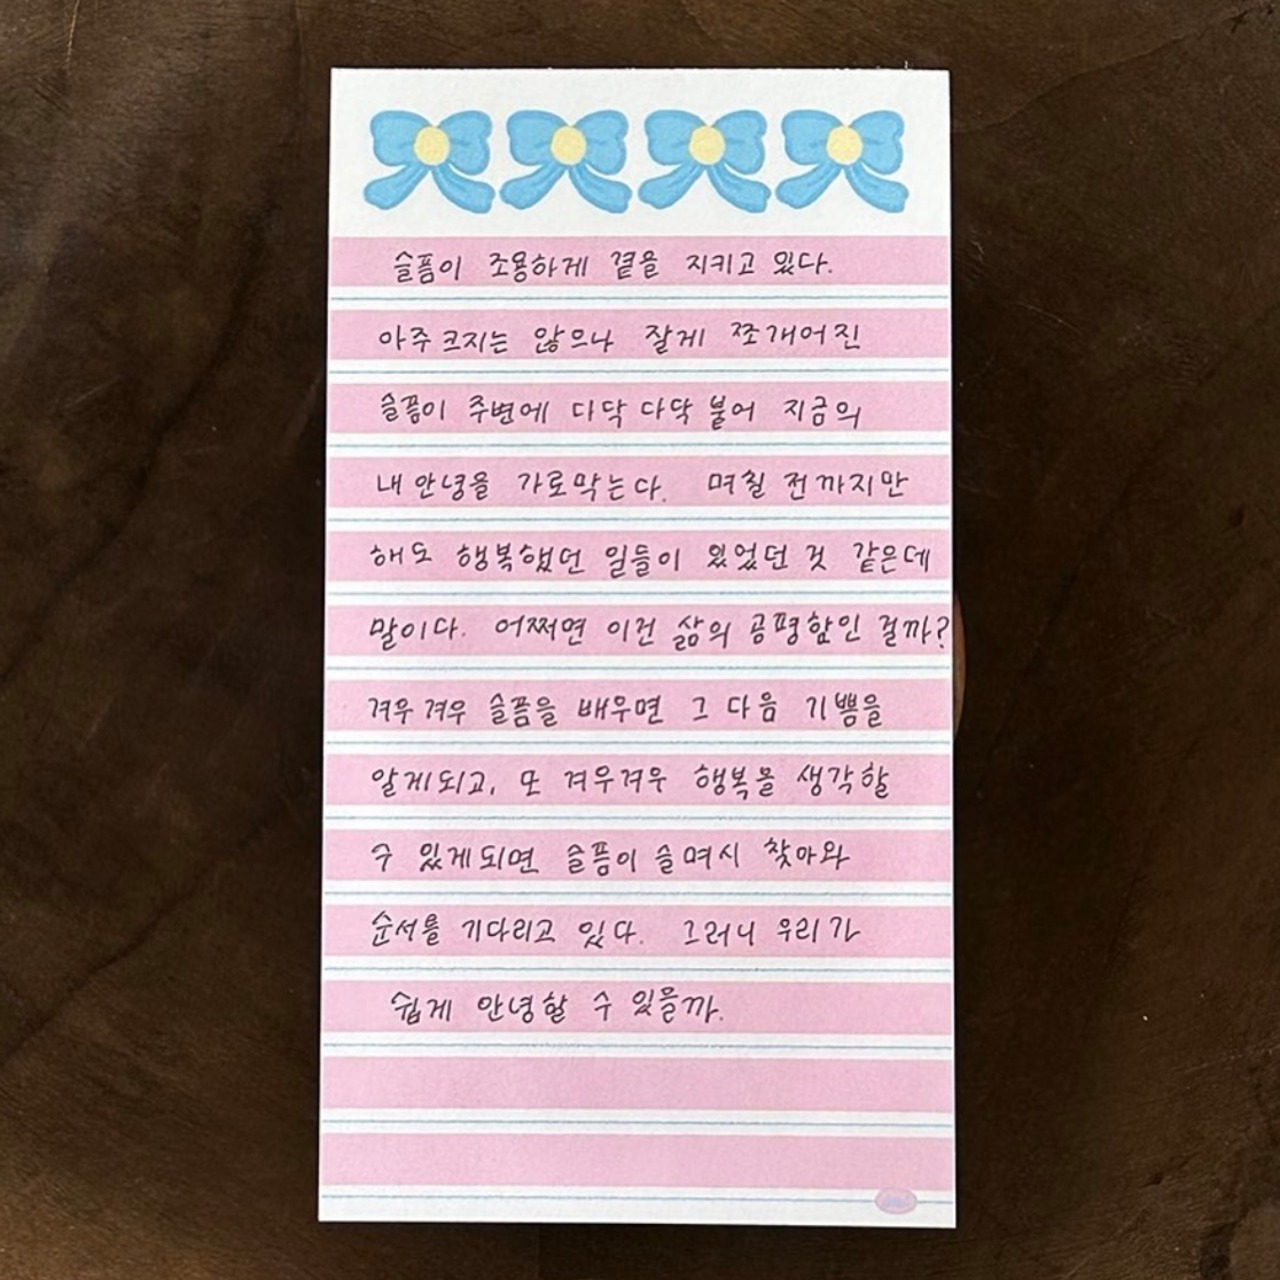 슬픔이 조용하게 곁을 지키고 있다.
아주 크지는 않으나 잘게 쪼개어진
슬픔이 주변에 다닥 다닥 붙어 지금의
내 안녕을 가로막는다. 며칠 전까지만
해도 행복했던 일들이 있었던 것 같은데
말이다. 어쩌면 이건 삶의 공평함인 걸까?
겨우겨우 슬픔을 배우면 그 다음 기쁨을
알게되고, 또 겨우겨우 행복을 생각할
수 있게되면 슬픔이 슬며시 찾아와
순서를 기다리고 있다. 그러니 우리가
쉽게 안녕할 수 있을까.